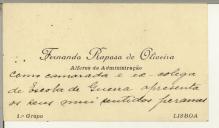 Fernando Raposa de Oliveira
Alferes de Administração
como camarada e ex-colega
da Escola de Guerra apresenta
os seus mui sentidos pesames
1.º Grupo LISBOA